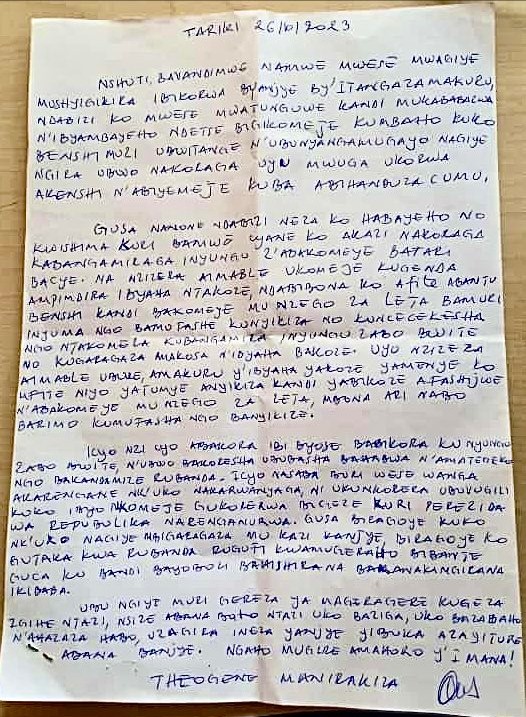 TARIKI 26/10/2023
NSHUTI, BAVANDIMWE NAMWE MWESE MWAGIYE
MUSHYIGIKIRA IBIKORWA BYANJYE BY'ITANGAZAMAKURU,
NDABIZI KO MWESE MWATUNGUWE KANDI MUKABABAZWA
N'IBYAMBAYEHO NDETSE BIGIKOMEJE KUMBAHO KUKO
BENSHI MURI UBWITANGE N'UBUNYANGAMUGAYO NAGIYE
NGIRA UBWO NAKORAGA UYU MWUGA UKORWA
AKENSHI N'ABIYEMEJE KUBA ABIHANDUZACUMU.
GUSA NANONE NDABIZI NEZA KO HABAYEHO NO
KWISHIMA KURI BAMWE CYANE KO AKAZI NAKORAGA
KABANGAMIRAGA INYUNGU Z'ABAKOMEYE BATARI
BACYE. NA NZIZERA AIMABLE UKOMEJE KUGENDA
AMPIMBIRA IBYAHA NTAKOZE, NDABIBONA KO AFITE ABANTU
BENSHI KANDI BAKOMEYE MU NZEGO ZA LETA BAMURI
INYUMA NGO BAMUFASHE KUNYIKIZA NO KUNCECEKESHA
NGO NTAKOMEZA KUBANGAMIRA INYUNGU ZABO BWITE
NO KUGARAGAZA AMAKOSA N'IBYAHA BAKOZE. UYO NZIZEZA
AIMABLE UBURE, AMAKURU Y'IBYAHA YAKOZE YAMENYE KO
MFITE NIYO YATUMYE ANYIKIZA KANDI YABIKOZE AFASHIJWE
N'ABAKOMEYE MU NZEGO ZA LETA, MBONA ARI NABO
BARIMO KUMUFASHA NGO BANYIKIZE.
ICYO NZI CYO ABAKORA IBI BYOSE BABIKORA KU NYUNGU
ZABO BWITE, N'UBWO BAKORESHA UBUBASHA BAHABWA N'AMATEGEKO
NGO BAKANDAMIZE RUBANDA. ICYO NASABA BURI WESE WANGA
AKARENGANE NK'UKO NAKARWANYAGA, NI UKUNKORERA UBUVUGIZI
KUKO IBYO NKOMEJE GUKORERWA BIGEZE KURI PEREZIDA
WA REPUBULIKA NARENGANURWA. GUSA BIRAGOYE KUKO
NK'UKO NAGIYE MBIGARAGAZA MU KAZI KANJYE, BIRAGOYE KO
GUTAKA KWA RUBANDA RUGUFI KWAMUGERAHO BIBANJE
GUCA KU BANDI BAYOBOZI BAHISHIRANA BAKANAKINGIRANA
IKIBABA.
UBU NGIYE MURI GEREZA YA MAGERAGERE KUGEZA
IGIHE NTAZI, NSIZE ABANA BATO NTAZI UKO BAZIGA, UKO BAZABAHO
N'AHAZAZA HABO, UZAGIRA INEZA YANJYE YIBUKA AZAYITURE
ABANA BANJYE. NGAHO MUGIRE AMAHORO Y'IMANA!
THEOGENE MANIRAKIZA